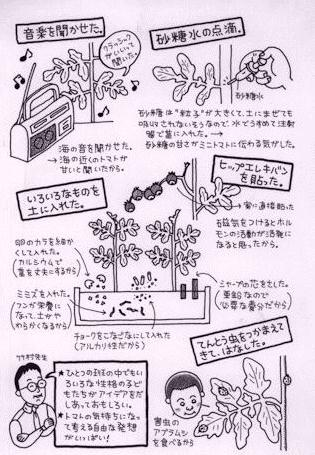 音楽を聞かせた。
クラシックが
いいって
聞いた。
海の音を聞かせた。
→海の近くのトマトが
甘いと聞いたから。
砂糖水の点滴。
砂糖水
砂糖は"粒子"が大きくて、土にまぜても
吸収されないそうなので、水でうすめて注射
器で茎に入れた。→
砂糖の甘さがミニトマトに伝わる気がした。
ヒップエレキバン
を貼った。
→実に直接貼った
磁気をつけるとホル
モンの活動が活発に
なると思ったから。
いろいろなものを
土に入れた。
卵のカラを細か
くして入れた。
(カルシウムで
茎を丈夫にするから)
ミミズを入れた。
(フンが栄養に
なって、土がや
わらかくなるから)
チョークをこなごなにして入れた
(アルカリ性だから)
シャープの芯をさした。
(亜鉛なので
必要な養分だから)
てんとう虫をつかまえて
きて、はなした。
害虫の
アブラムシ
を食べるから
竹村先生
★ひとつの班の中でもい
ろいろな性格の子ど
もたちがアイデアをだ
しあっておもしろい。
★トマトの気持ちになっ
て考える自由な発想
がいっぱい!